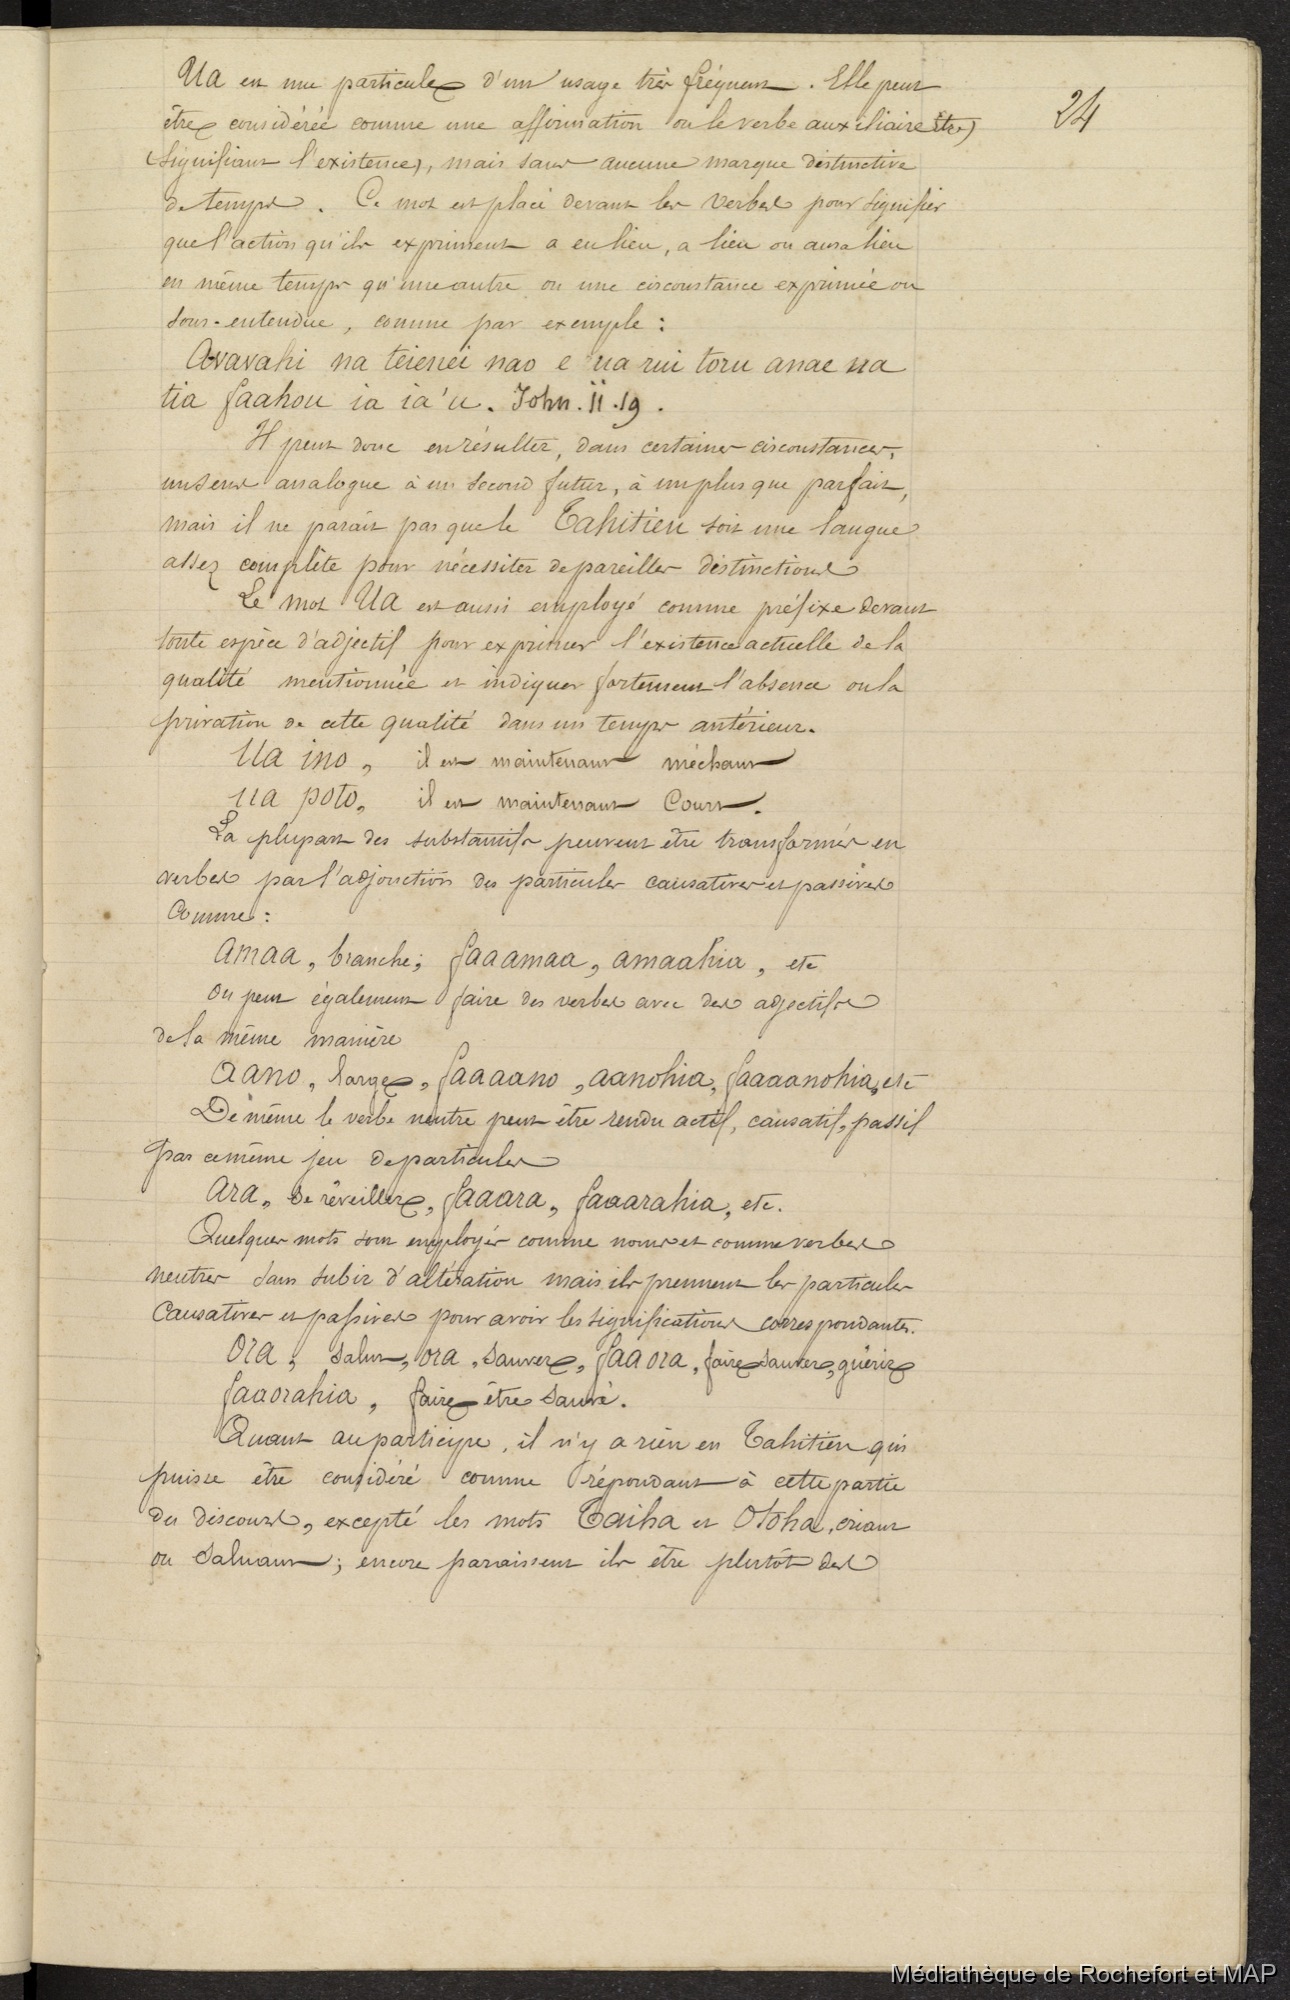 24
Ua est une particule d'un usage très fréquent. Elle peut
être considérée comme une affirmation ou le verbe auxiliaire être)
(signifiant l'existence), mais sans aucune marque distinctive
de temps. Ce mot est placé devant les verbes pour signifier
que l'action qu'ils expriment a eu lieu, a lieu ou aura lieu
en même temps qu'une autre ou une circonstance exprimée ou
sous-entendue, comme par exemple :
Avavahi na teienei nao e ua rui toru anae ua
tia faahou ia ia'u. John. ii. 19.
Il peut donc en résulter, dans certaines circonstances,
un sens analogue à un second futur, à un plus que parfait,
mais il ne parait pas que le Tahitien soit une langue
assez complète pour nécessiter de pareilles distinctions
Le mot Ua est aussi employé comme préfixe devant
toute espèce d'adjectif pour exprimer l'existence actuelle de la
qualité mentionnée et indiquer fortement l'absence ou la
privation de cette qualité dans un temps antérieur.
Ua ino, il est maintenant méchant
ua poto, il est maintenant court.
La plupart des substantifs peuvent être transformés en
verbes par l'adjonction des particules causatives et passives
comme :
amaa, branche; faaamaa, amaahia, etc
on peut également faire des verbes avec des adjectifs
de la même manière
aano, large, faaaano, aanohia, faaaanohia, etc
De même le verbe neutre peut être rendu actif, causatif, passif
par ce même jeu de particules
ara, se réveiller, faaara, faaarahia, etc.
Quelques mots sont employés comme noms et comme verbes
neutres sans subir d'altération mais ils prennent les particules
causatives et passives pour avoir les significations correspondantes.
Ora, salut, ora, sauver, faaora, faire sauver, guérir
faaorahia, faire être sauvé.
Quant au participe, il n'y a rien en Tahitien qui
puisse être considéré comme répondant à cette partie
du discours, excepté les mots Taiha et Otoha, criant
ou saluant; encore paraissent ils être plutôt des
Médiathèque de Rochefort et MAP